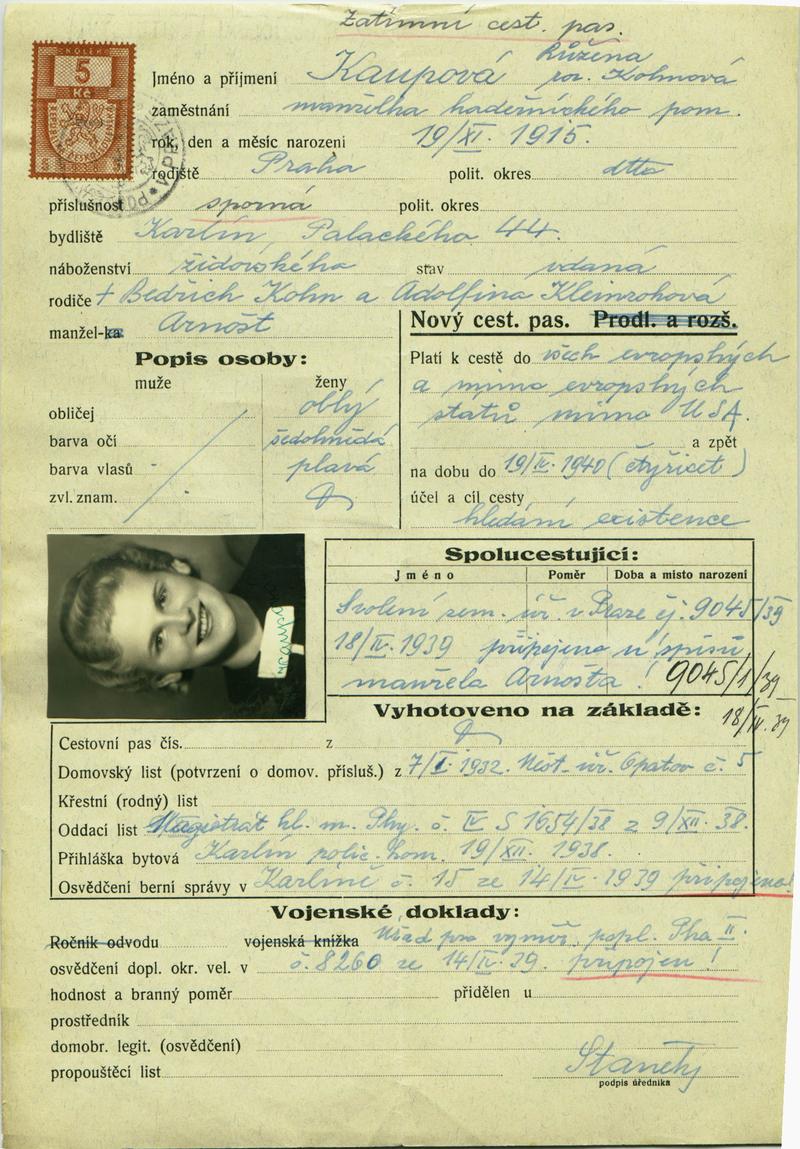 Zatímní cest. pas.
KOLEK
5
Kč
Jméno a příjmení Kaupová Růžena roz. Kohnová
zaměstnání manželka hadernického pom.
rok, den a měsíc narození 19/XI. 1915.
rodiště Praha polit. okres dtto
příslušnost sporná polit. okres
bydliště Karlín, Palackého 44.
náboženství židovského stav vdaná
rodiče + Bedřich Kohn a Adolfina
manžel-ka Arnošt
Nový cest. pas. Prodl. a rozš.
Popis osoby:
muže ženy
obličej oblý
barva očí šedohnědá
barva vlasů plavá
zvl. znam.
Platí k cestě do všech evropských
a mimo evropských
států mimo USA.
a zpět
na dobu do 19/IV. 1940 (čtyřicet)
účel a cíl cesty
hledání existence
Kaupová
Spolucestující:
Jméno Poměr Doba a místo narození
Svolení zem. úř. v Praze čj. 9045/39
18/IV. 1939 připojeno u spisů
manžela Arnošta! 9045/1/39
18/IV. 39
Vyhotoveno na základě:
Cestovní pas čís. z
Domovský list (potvrzení o domov. přísluš.) z 7/I. 1932. Měst. úř. Opatov č. 5
Křestní (rodný) list
Oddací list Magistrát hl. m. Phy. č. IV S 1654/38 z 9/XII. 38.
Přihláška bytová Karlín polic. kom. 19/XII. 1938.
Osvědčení berní správy v Karlíně č. 15 ze 14/IV. 1939 připojeno!
Vojenské doklady:
Ročník odvodu vojenská knížka Úřad pro vyměř. popl. Pha II.
osvědčení dopl. okr. vel. v č. 8260 ze 14/IV. 39. připojen!
hodnost a branný poměr přidělen u
prostředník
domobr. legit. (osvědčení)
propouštěcí list
podpis úředníka